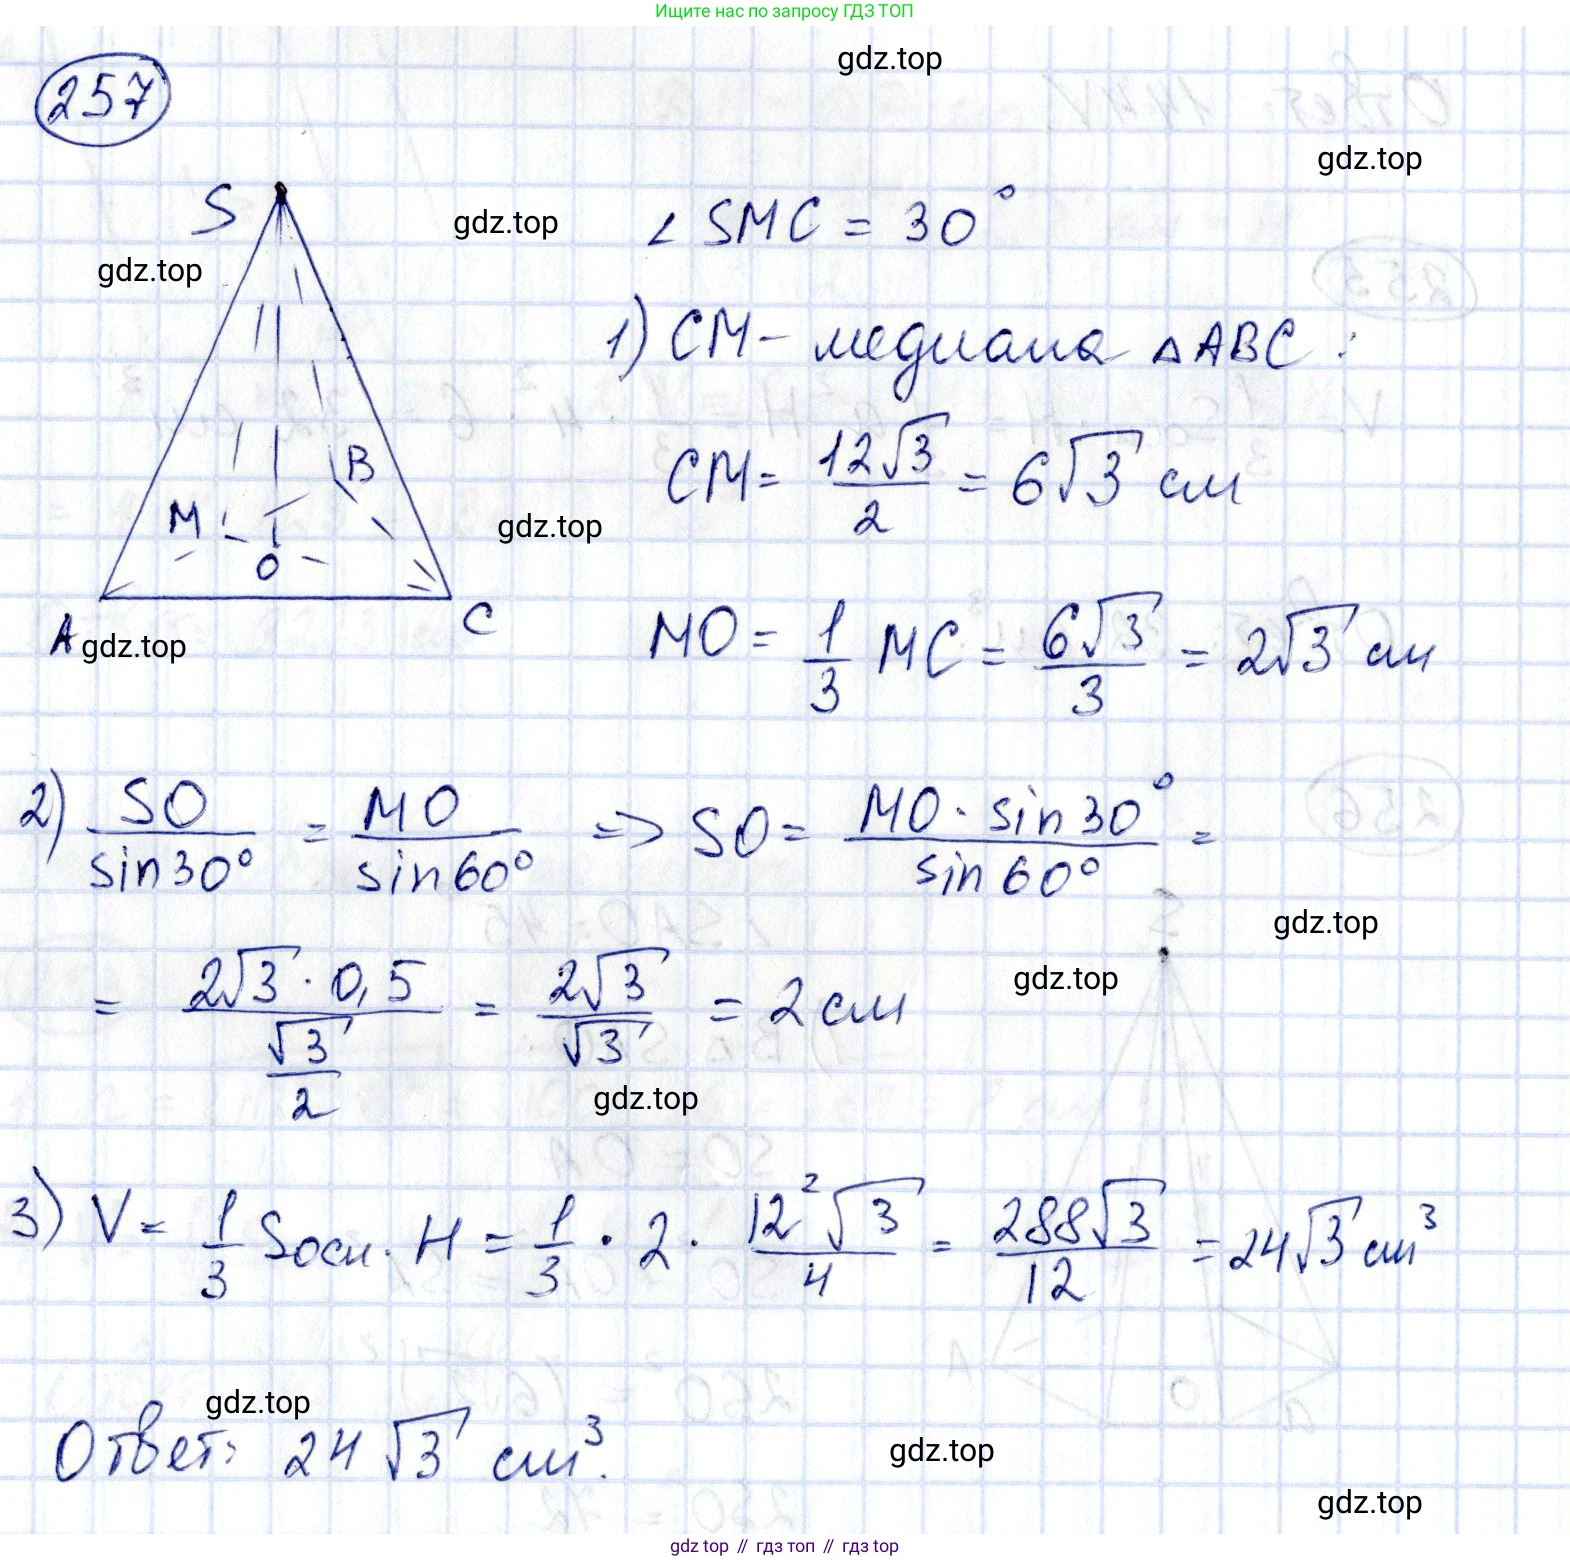 Ищите нас по запросу ГДЗ ТОП
gdz.top
257
gdz.top
S
gdz.top
∠ SMC = 30°
gdz.top
1) CM - медиана △ABC :
CM = 12√3/2 = 6√3 см
B
M
O
gdz.top
A
C
gdz.top
MO = 1/3 MC = 6√3/3 = 2√3 см
2) SO/sin30° = MO/sin60° => SO = MO · sin30°/sin60° =
gdz.top
= 2√3 · 0,5/(√3/2) = 2√3/√3 = 2 см
gdz.top
gdz.top
3) V = 1/3 Sосн. · H = 1/3 · 2 · 12²√3/4 = 288√3/12 = 24√3 см³
gdz.top
Ответ: 24√3 см³.
gdz.top
gdz.top
gdz top // гдз топ // гдз top